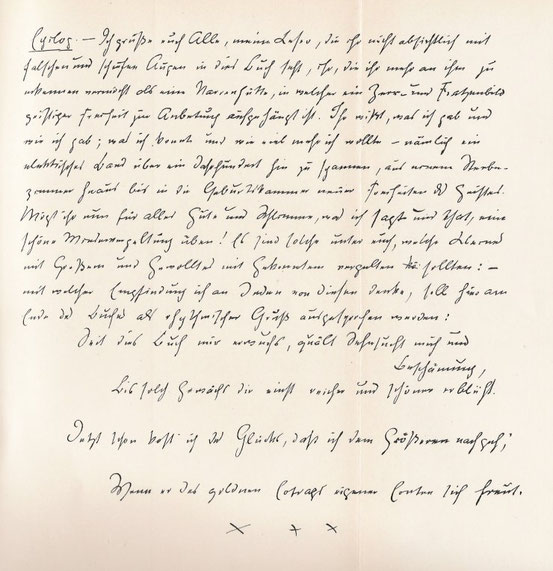 Epilog. — Ich grüße euch Alle, meine Leser, die ihr nicht absichtlich mit
falschen und schiefen Augen in dies Buch seht, ihr, die ihr mehr an ihm zu
erkennen vermögt als eine Narrenhütte, in welcher ein Zerr- und Fratzenbild
geistiger Freiheit zur Anbetung aufgehängt ist. Ihr wißt, was ich gab und
wie ich gab; was ich konnte und wie viel mehr ich wollte — nämlich ein
elektrisches Band über ein Jahrhundert hin zu spannen, aus einem Sterbe-
zimmer heraus bis in die Geburtskammer neuer Freiheiten des Geistes.
Mögt ihr nun für alles Gute und Schlimme, was ich sagte und that, eine
schöne Wiedervergeltung üben! Es sind solche unter euch, welche Kleines
mit Großem und Gewolltes mit Gekonntem vergelten sollten: —
mit welcher Empfindung ich an Jeden von diesen denke, soll hier am
Ende des Buches als rhythmischer Gruß ausgesprochen werden:
Seit dies Buch mir erwuchs, quält Sehnsucht mich und
Beschämung,
Bis solch Gewächs dir einst reicher und schöner erblüht.
Jetzt schon kost' ich des Glücks, daß ich dem Größeren nachgeh',
Wenn er des goldnen Ertrags eigener Ernten sich freut.